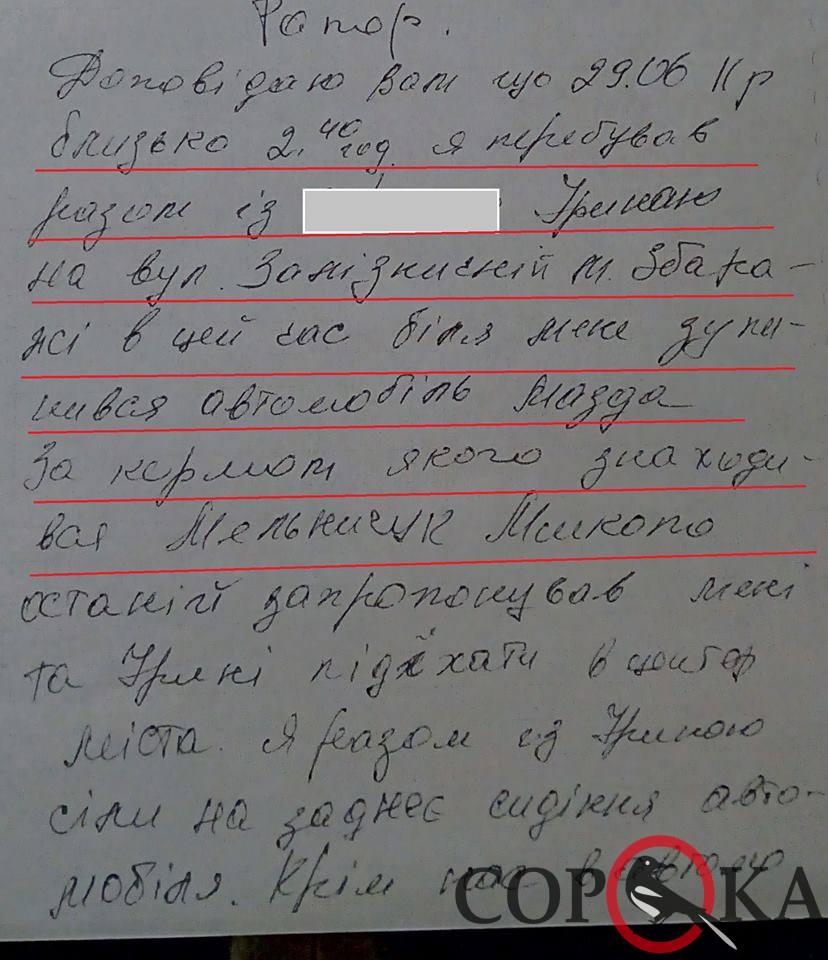 Рапорт.
Доповідаю вам що 29.06 11 р
близько 2.40 год. я перебував
разом із Іриною
на вул. Залізничній м. Збара-
жі в цей час біля мене зупи-
нився автомобіль мазда
За кермом якого знаходи-
вся Мельничук Микола
останій запропонував мені
та Ірині підїхати в центер
міста. Я разом із Іриною
сіли на заднєє сидіння авто-
мобіля. Крім нас в
СОРОКА